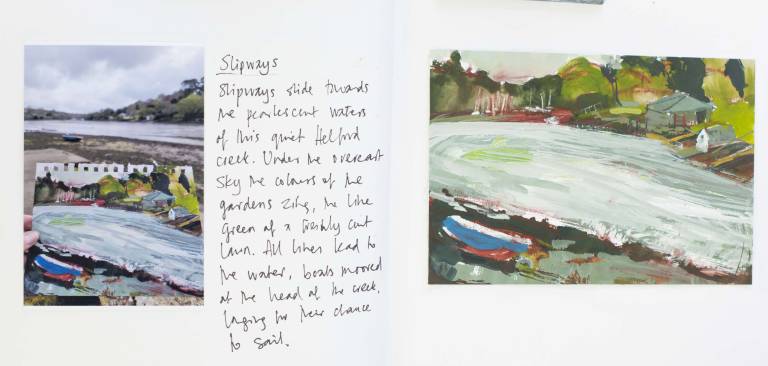 Slipways
Slipways slide towards
the pearlescent waters
of this quiet Helford
creek. Under the overcast
sky the colours of the
gardens zing, the lime
green of a freshly cut
lawn. All lines lead to
the water, boats moored
at the head of the creek,
longing for their chance
to sail.